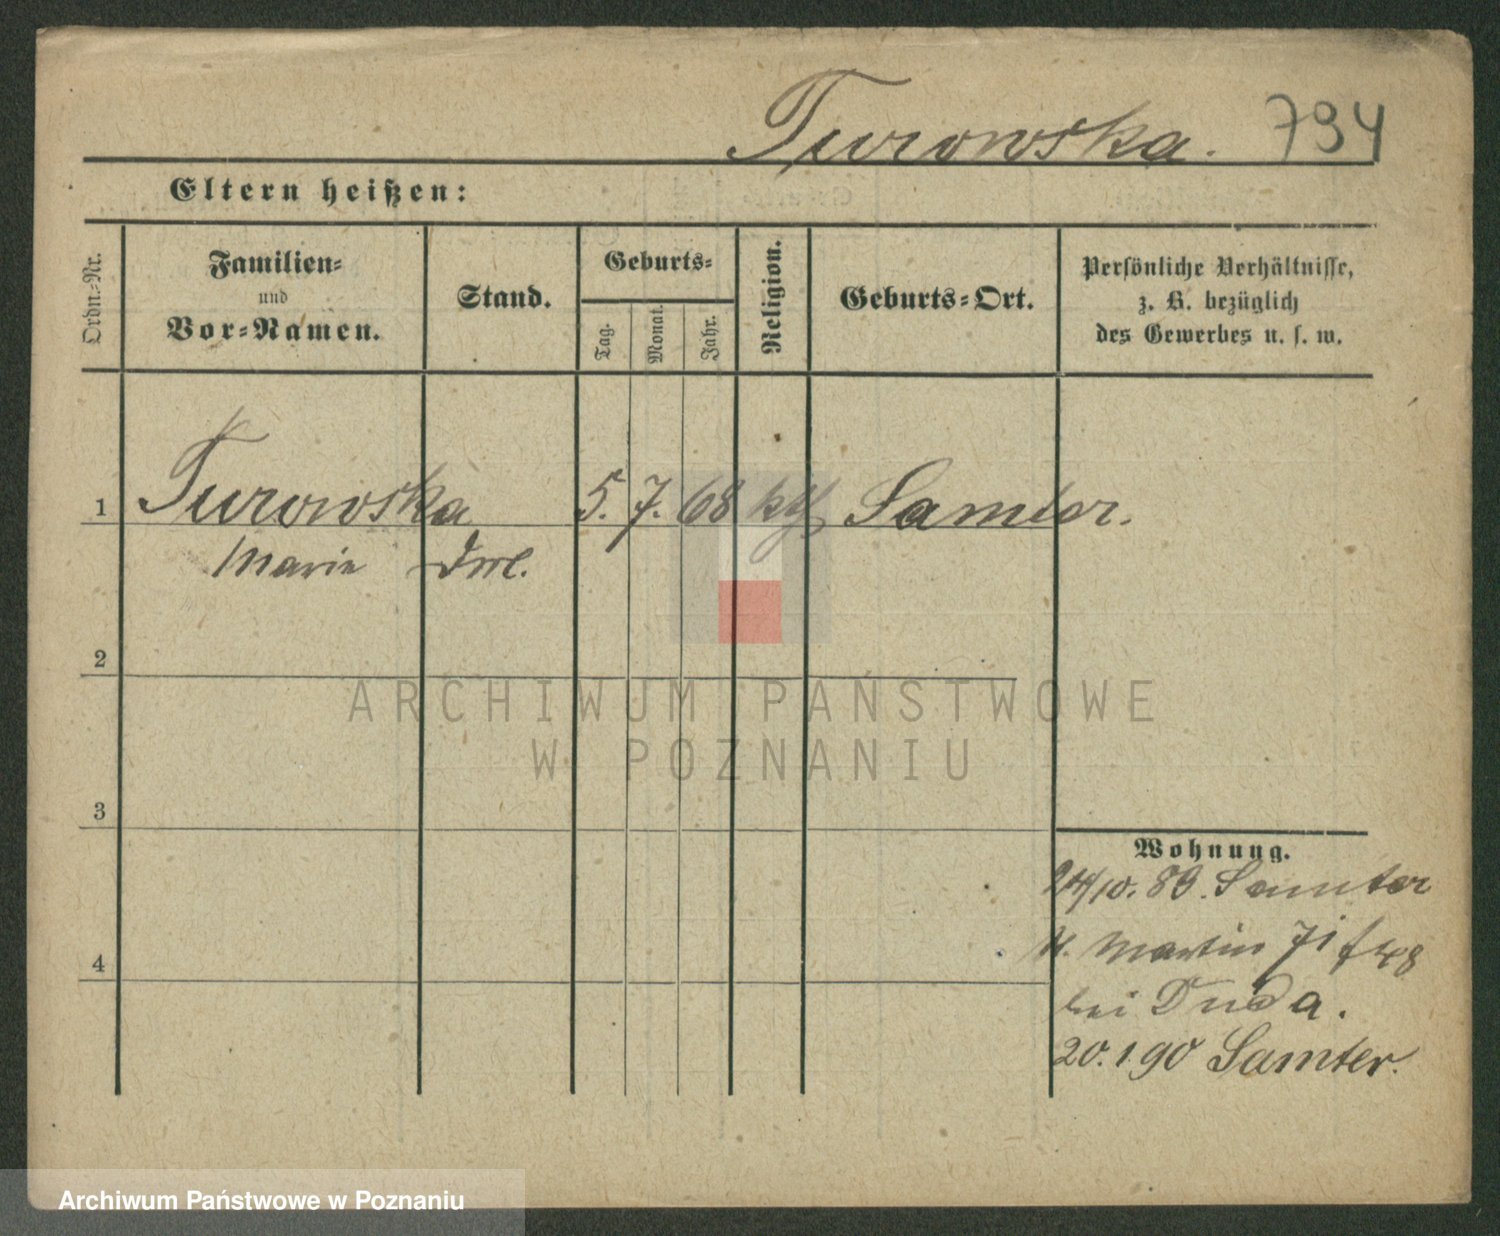 Turowska. 794
Eltern heißen:
Ordn.-Nr.
Familien-
und
Vor-Namen.
Stand.
Geburts-
Tag.
Monat.
Jahr.
Religion.
Geburts-Ort.
Persönliche Verhältnisse,
z. B. bezüglich
des Gewerbes u. s. w.
1 Turowska 5. 7. 68 kth Samter.
Marie
2
3
4
Wohnung.
24/10. 89. Samter
St. Martin 71
bei Duda.
20.1.90 Samter.
ARCHIWUM PAŃSTWOWE
W POZNANIU
Archiwum Państwowe w Poznaniu